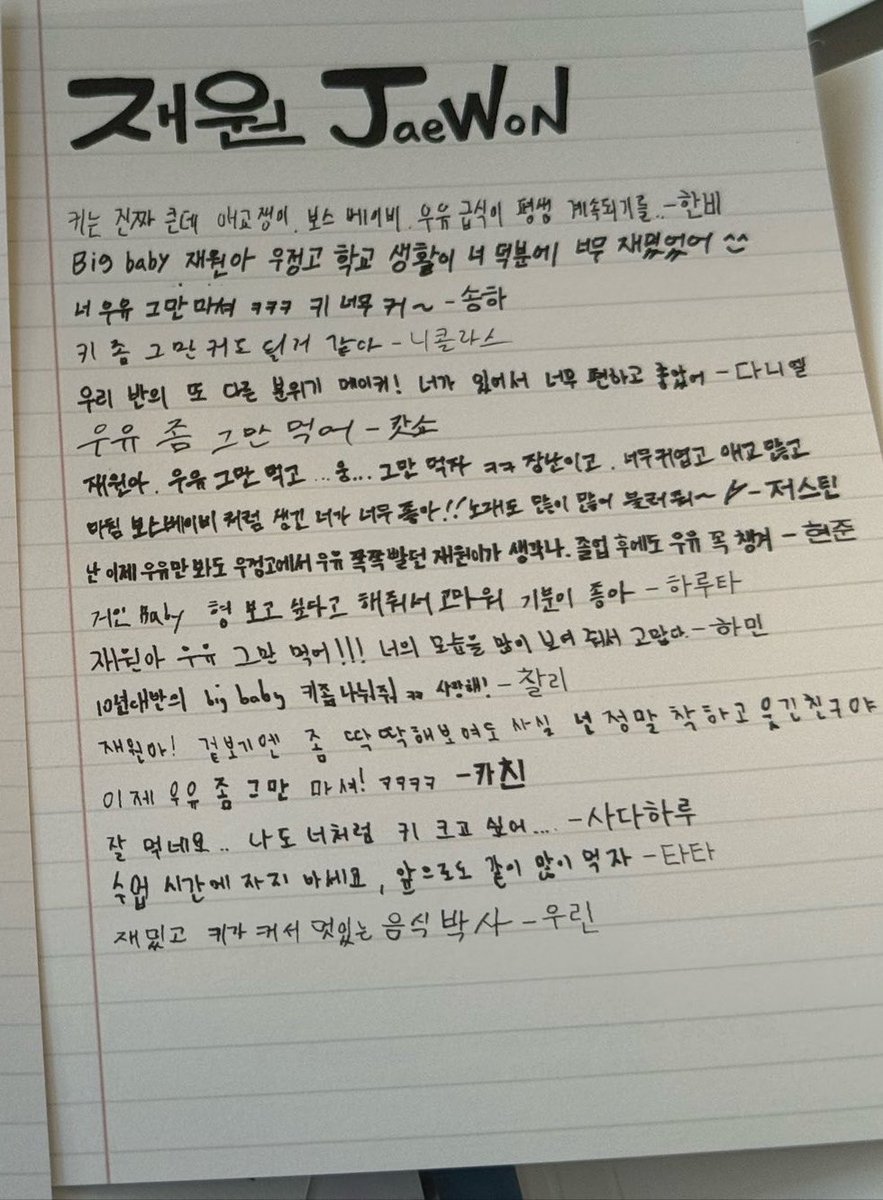 재원 JaeWoN
키는 진짜 큰데 애교쟁이. 보스 베이비. 우유급식이 평생 계속되기를..-한비
Big baby 재원아 우정고 학교 생활이 너 덕분에 너무 재밌었어 ^^
너 우유 그만 마셔 ㅋㅋㅋ 키 너무 커~ -송하
키 좀 그만 커도 될거 같아 -니콜라스
우리 반의 또 다른 분위기 메이커! 너가 있어서 너무 편하고 좋았어 -다니엘
우유 좀 그만 먹어 -캇쇼
재원아. 우유 그만 먹고 ...웅... 그만 먹자 ㅋㅋ 장난이고. 너무귀엽고 애교 많고
마팀 보스베이비 처럼 생긴 너가 너무 좋아!! 노래도 많이 많이 불러줘~ -저스틴
난 이제 우유만 봐도 우정고에서 우유 쪽쪽 빨던 재원이가 생각나. 졸업 후에도 우유 꼭 챙겨 -현준
거인 Baby 형 보고 싶다고 해줘서 고마워 기분이 좋아 -하루타
재원아 우유 그만 먹어!!! 너의 모습을 많이 보여 줘서 고맙다. -하민
10년대반의 big baby 키좀 나눠줘 ㅋㅋ 사랑해! -찰리
재원아! 겉보기엔 좀 딱딱해보여도 사실 넌 정말 착하고 웃긴친구야
이제 우유 좀 그만 마셔! ㅋㅋㅋㅋ -카친
잘 먹네요.. 나도 너처럼 키 크고 싶어... -사다하루
수업 시간에 자지 마세요, 앞으로도 같이 많이 먹자 -타타
재밌고 키가 커서 멋있는 음식 박사 -우린